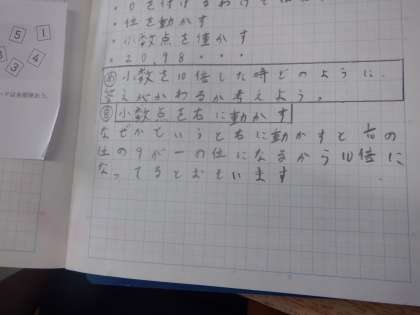 ・0を付けるわけで
・位を動かす
・小数点を動かす
・20.98・・・
小数を10倍した時どのように
答えがかわるか考えよう。
小数点を右に動かす
なぜかというと右に動かすと1/10の
位の9が一の位になるから10倍に
なってるとおもいます
5
1
3
4